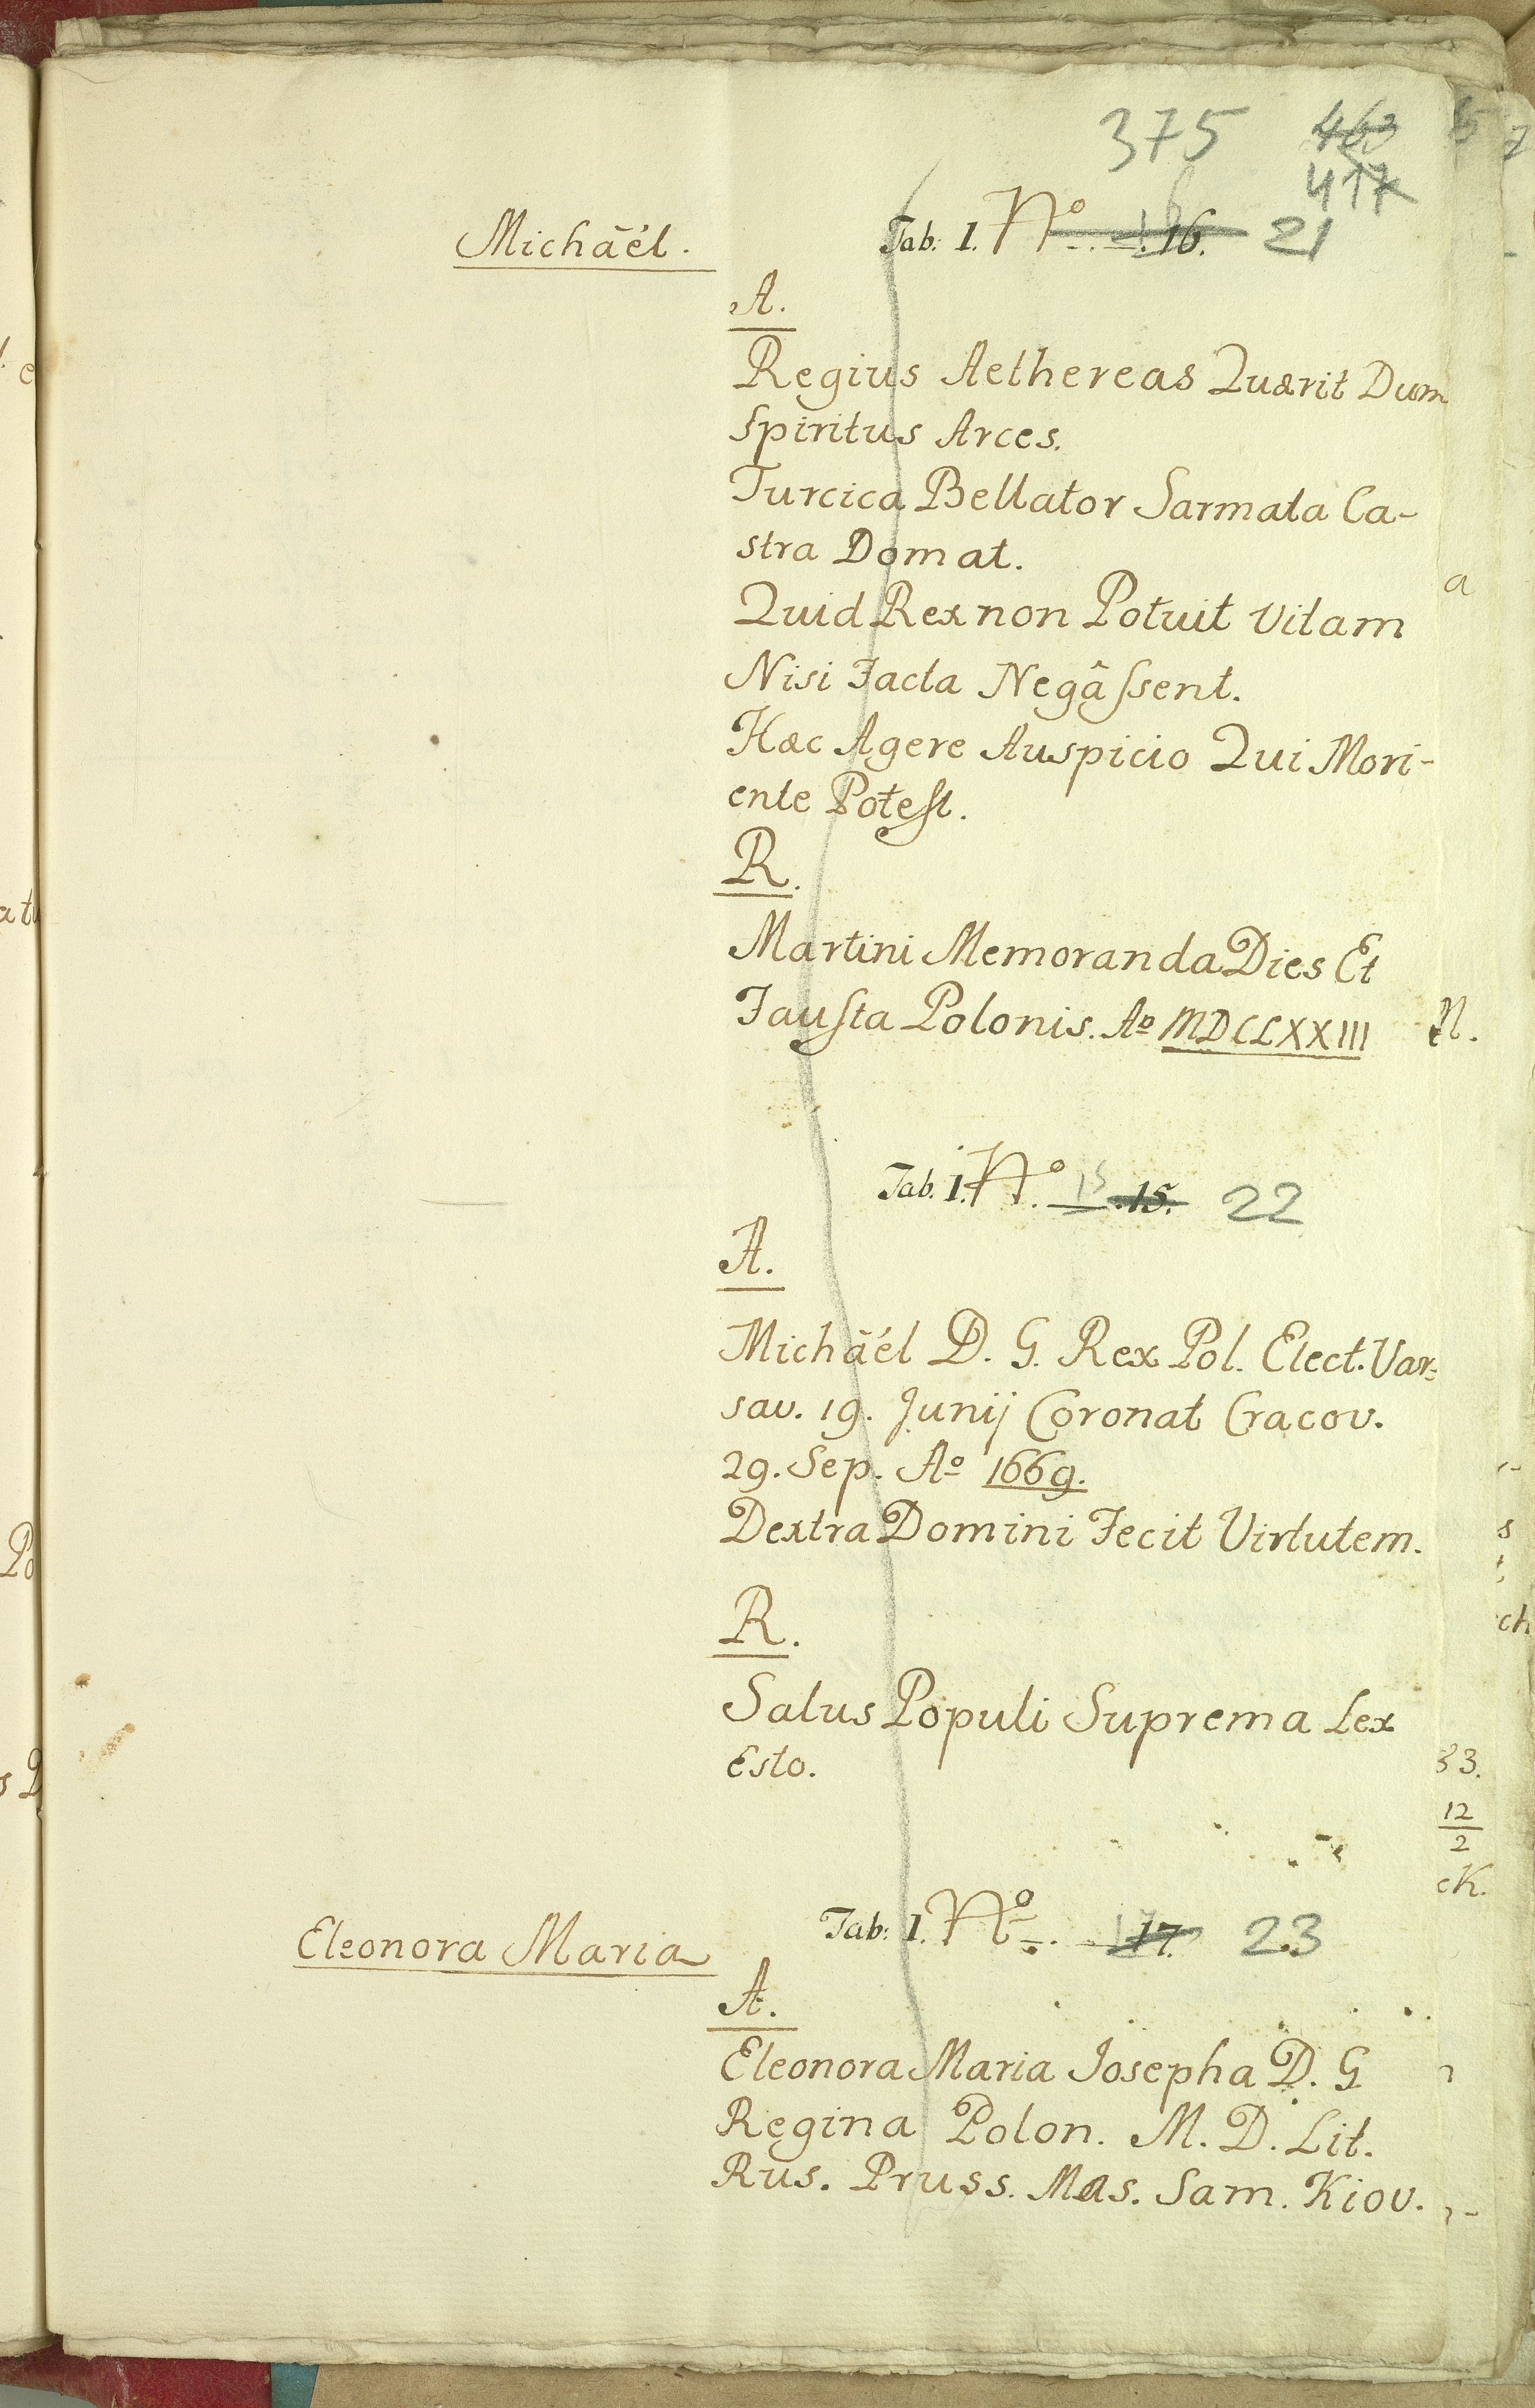 375 463
417
Michäél. Tab: I. No 16. 21
A.
Regius Aethereas Quærit Dum
Spiritus Arces.
Turcica Bellator Sarmata Ca-
stra Domat.
Quid Rex non Potuit Vitam
Nisi Facta Negâſsent.
Hæc Agere Auspicio Qui Mori-
ente Poteſt.
R.
Martini Memoranda Dies Et
Fauſta Polonis. Ao MDCLXXIII
Tab. I. No. 15 15. 22
A.
Michäél D. G. Rex Pol. Elect. Var-
sav. 19. Junij Coronat Cracov.
29. Sep. Ao 1669.
Dextra Domini Fecit Virtutem.
R.
Salus Populi Suprema Lex
Esto.
Eleonora Maria Tab: I. No 17 17. 23
A.
Eleonora Maria Josepha D. G
Regina Polon. M. D. Lit.
Rus. Pruss. Mas. Sam. Kiov.